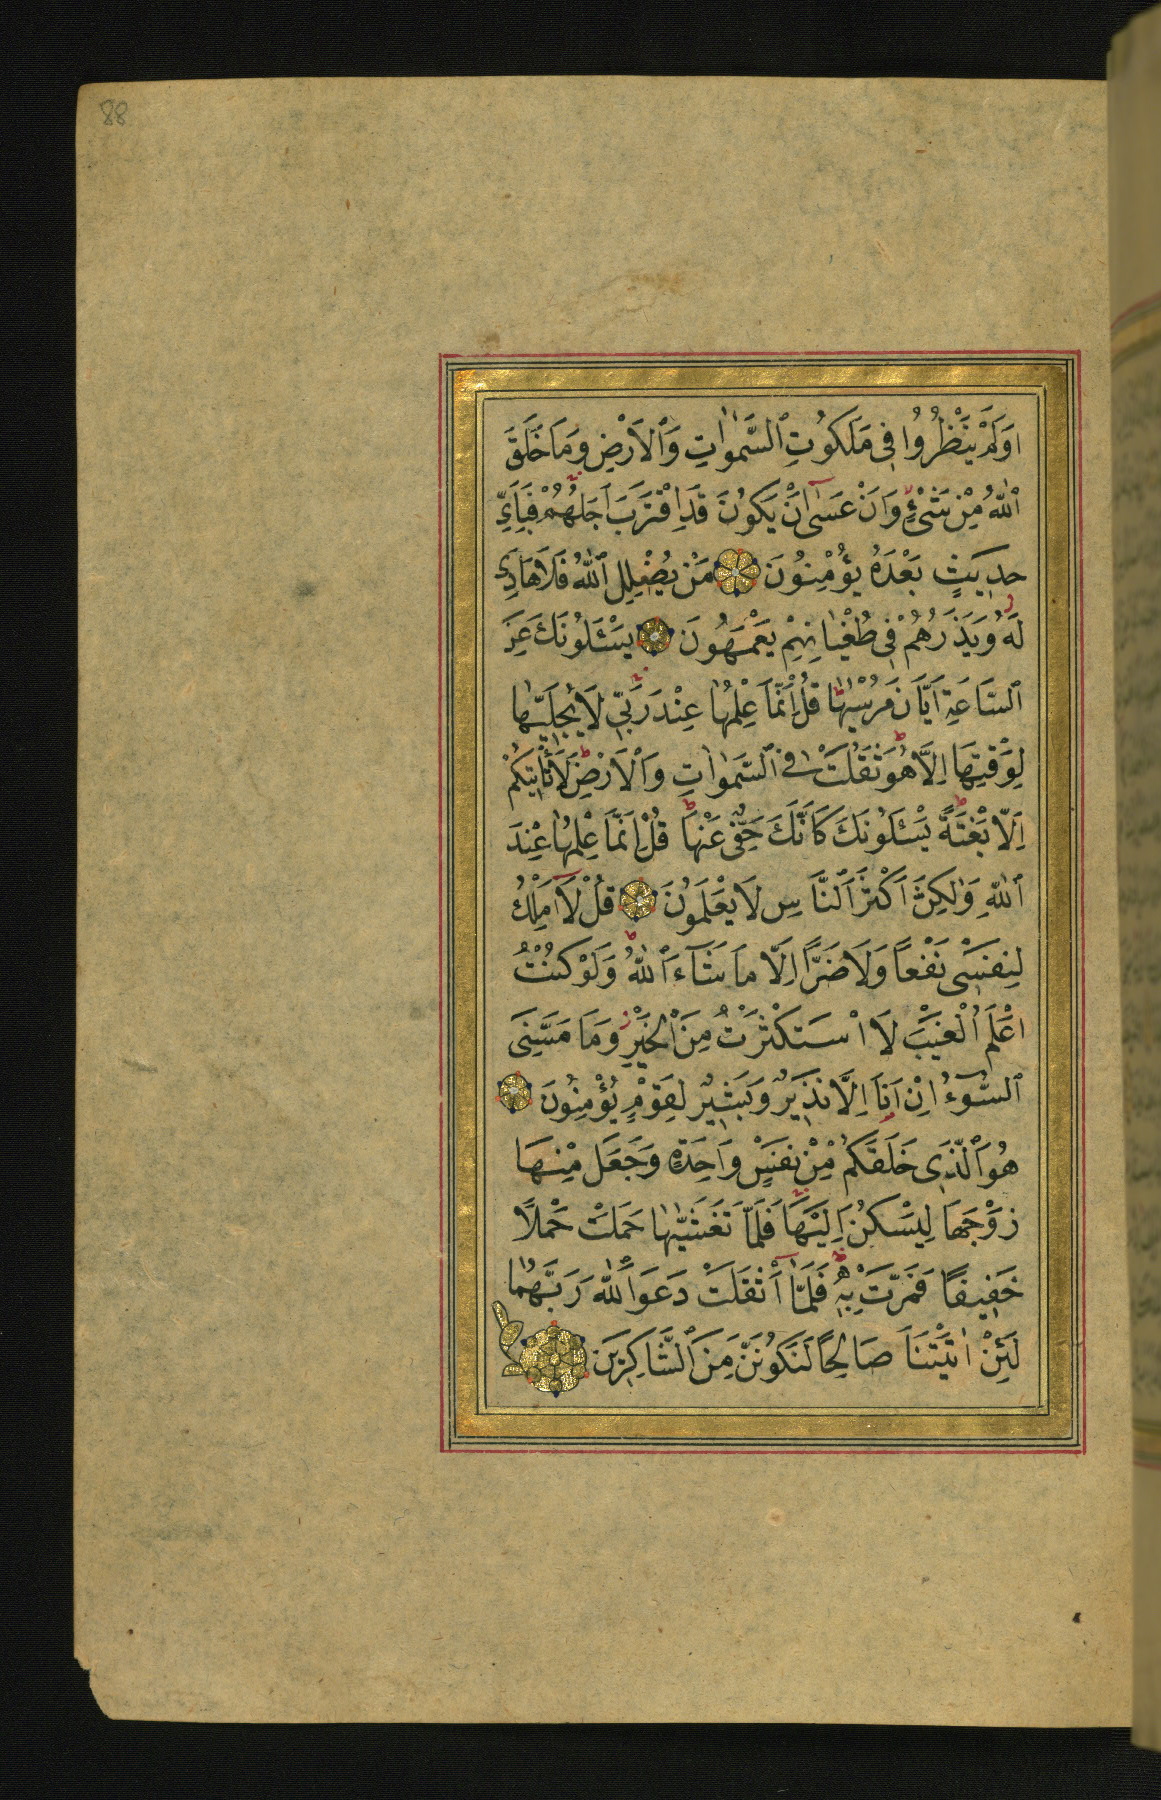 88
اَوَلَمْ يَنْظُرُوا فِى مَلَكُوتِ ٱلسَّمٰوَاتِ وَٱلْاَرْضِ وَمَا خَلَقَ
ٱللّٰهُ مِنْ شَىْءٍ وَاَنْ عَسٰٓى اَنْ يَكُونَ قَدِ اقْتَرَبَ اَجَلُهُمْ فَبِاَيِّ
حَدِيثٍ بَعْدَهُ يُؤْمِنُونَ مَنْ يُضْلِلِ ٱللّٰهُ فَلَا هَادِىَ
لَهُ وَيَذَرُهُمْ فِى طُغْيَانِهِمْ يَعْمَهُونَ يَسْـَٔلُونَكَ عَنِ
ٱلسَّاعَةِ اَيَّانَ مُرْسٰيهَا قُلْ اِنَّمَا عِلْمُهَا عِنْدَ رَبِّى لَا يُجَلِّيهَا
لِوَقْتِهَا اِلَّا هُوَ ثَقُلَتْ فِى ٱلسَّمٰوَاتِ وَٱلْاَرْضِ لَا تَاْتِيكُمْ
اِلَّا بَغْتَةً يَسْـَٔلُونَكَ كَاَنَّكَ حَفِىٌّ عَنْهَا قُلْ اِنَّمَا عِلْمُهَا عِنْدَ
ٱللّٰهِ وَلٰكِنَّ اَكْثَرَ ٱلنَّاسِ لَا يَعْلَمُونَ قُلْ لَٓا اَمْلِكُ
لِنَفْسِى نَفْعًا وَلَا ضَرًّا اِلَّا مَا شَٓاءَ ٱللّٰهُ وَلَوْ كُنْتُ
اَعْلَمُ ٱلْغَيْبَ لَا اسْتَكْثَرْتُ مِنَ ٱلْخَيْرِ وَمَا مَسَّنِىَ
ٱلسُّٓوءُ اِنْ اَنَا اِلَّا نَذِيرٌ وَبَشِيرٌ لِقَوْمٍ يُؤْمِنُونَ
هُوَ ٱلَّذِى خَلَقَكُمْ مِنْ نَفْسٍ وَاحِدَةٍ وَجَعَلَ مِنْهَا
زَوْجَهَا لِيَسْكُنَ اِلَيْهَا فَلَمَّا تَغَشّٰيهَا حَمَلَتْ حَمْلًا
خَفِيفًا فَمَرَّتْ بِهِ فَلَمَّٓا اَثْقَلَتْ دَعَوَا ٱللّٰهَ رَبَّهُمَا
لَئِنْ اٰتَيْتَنَا صَالِحًا لَنَكُونَنَّ مِنَ ٱلشَّاكِرِينَ